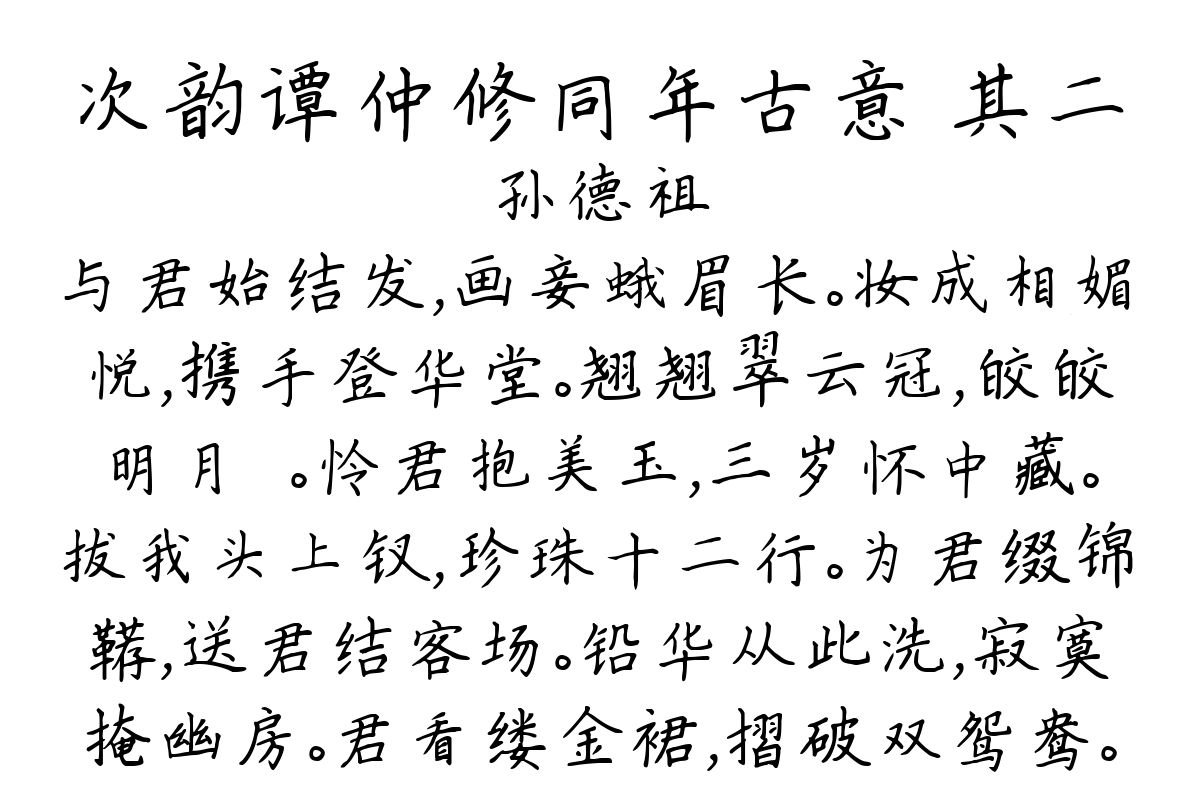 次韵谭仲修同年古意 其二
孙德祖
与君始结发,画妾蛾眉长。妆成相媚
悦,携手登华堂。翘翘翠云冠,皎皎
明月 。怜君抱美玉,三岁怀中藏。
拔我头上钗,珍珠十二行。为君缀锦
鞯,送君结客场。铅华从此洗,寂寞
掩幽房。君看缕金裙,摺破双鸳鸯。